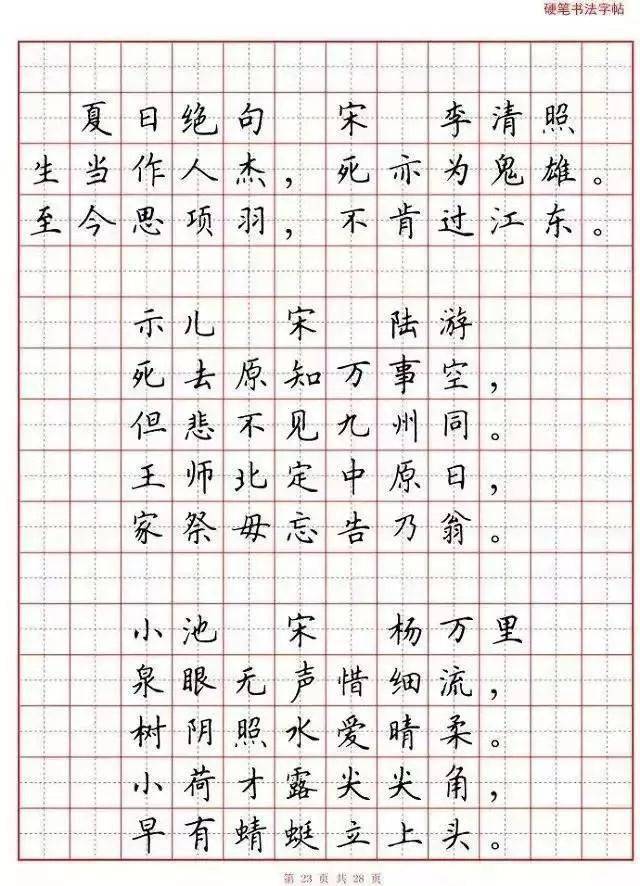 硬笔书法字帖
夏日绝句 宋 李清照
生当作人杰，死亦为鬼雄。
至今思项羽，不肯过江东。
示儿 宋 陆游
死去原知万事空，
但悲不见九州同。
王师北定中原日，
家祭毋忘告乃翁。
小池 宋 杨万里
泉眼无声惜细流，
树阴照水爱晴柔。
小荷才露尖尖角，
早有蜻蜓立上头。
第 23 页 共 28 页